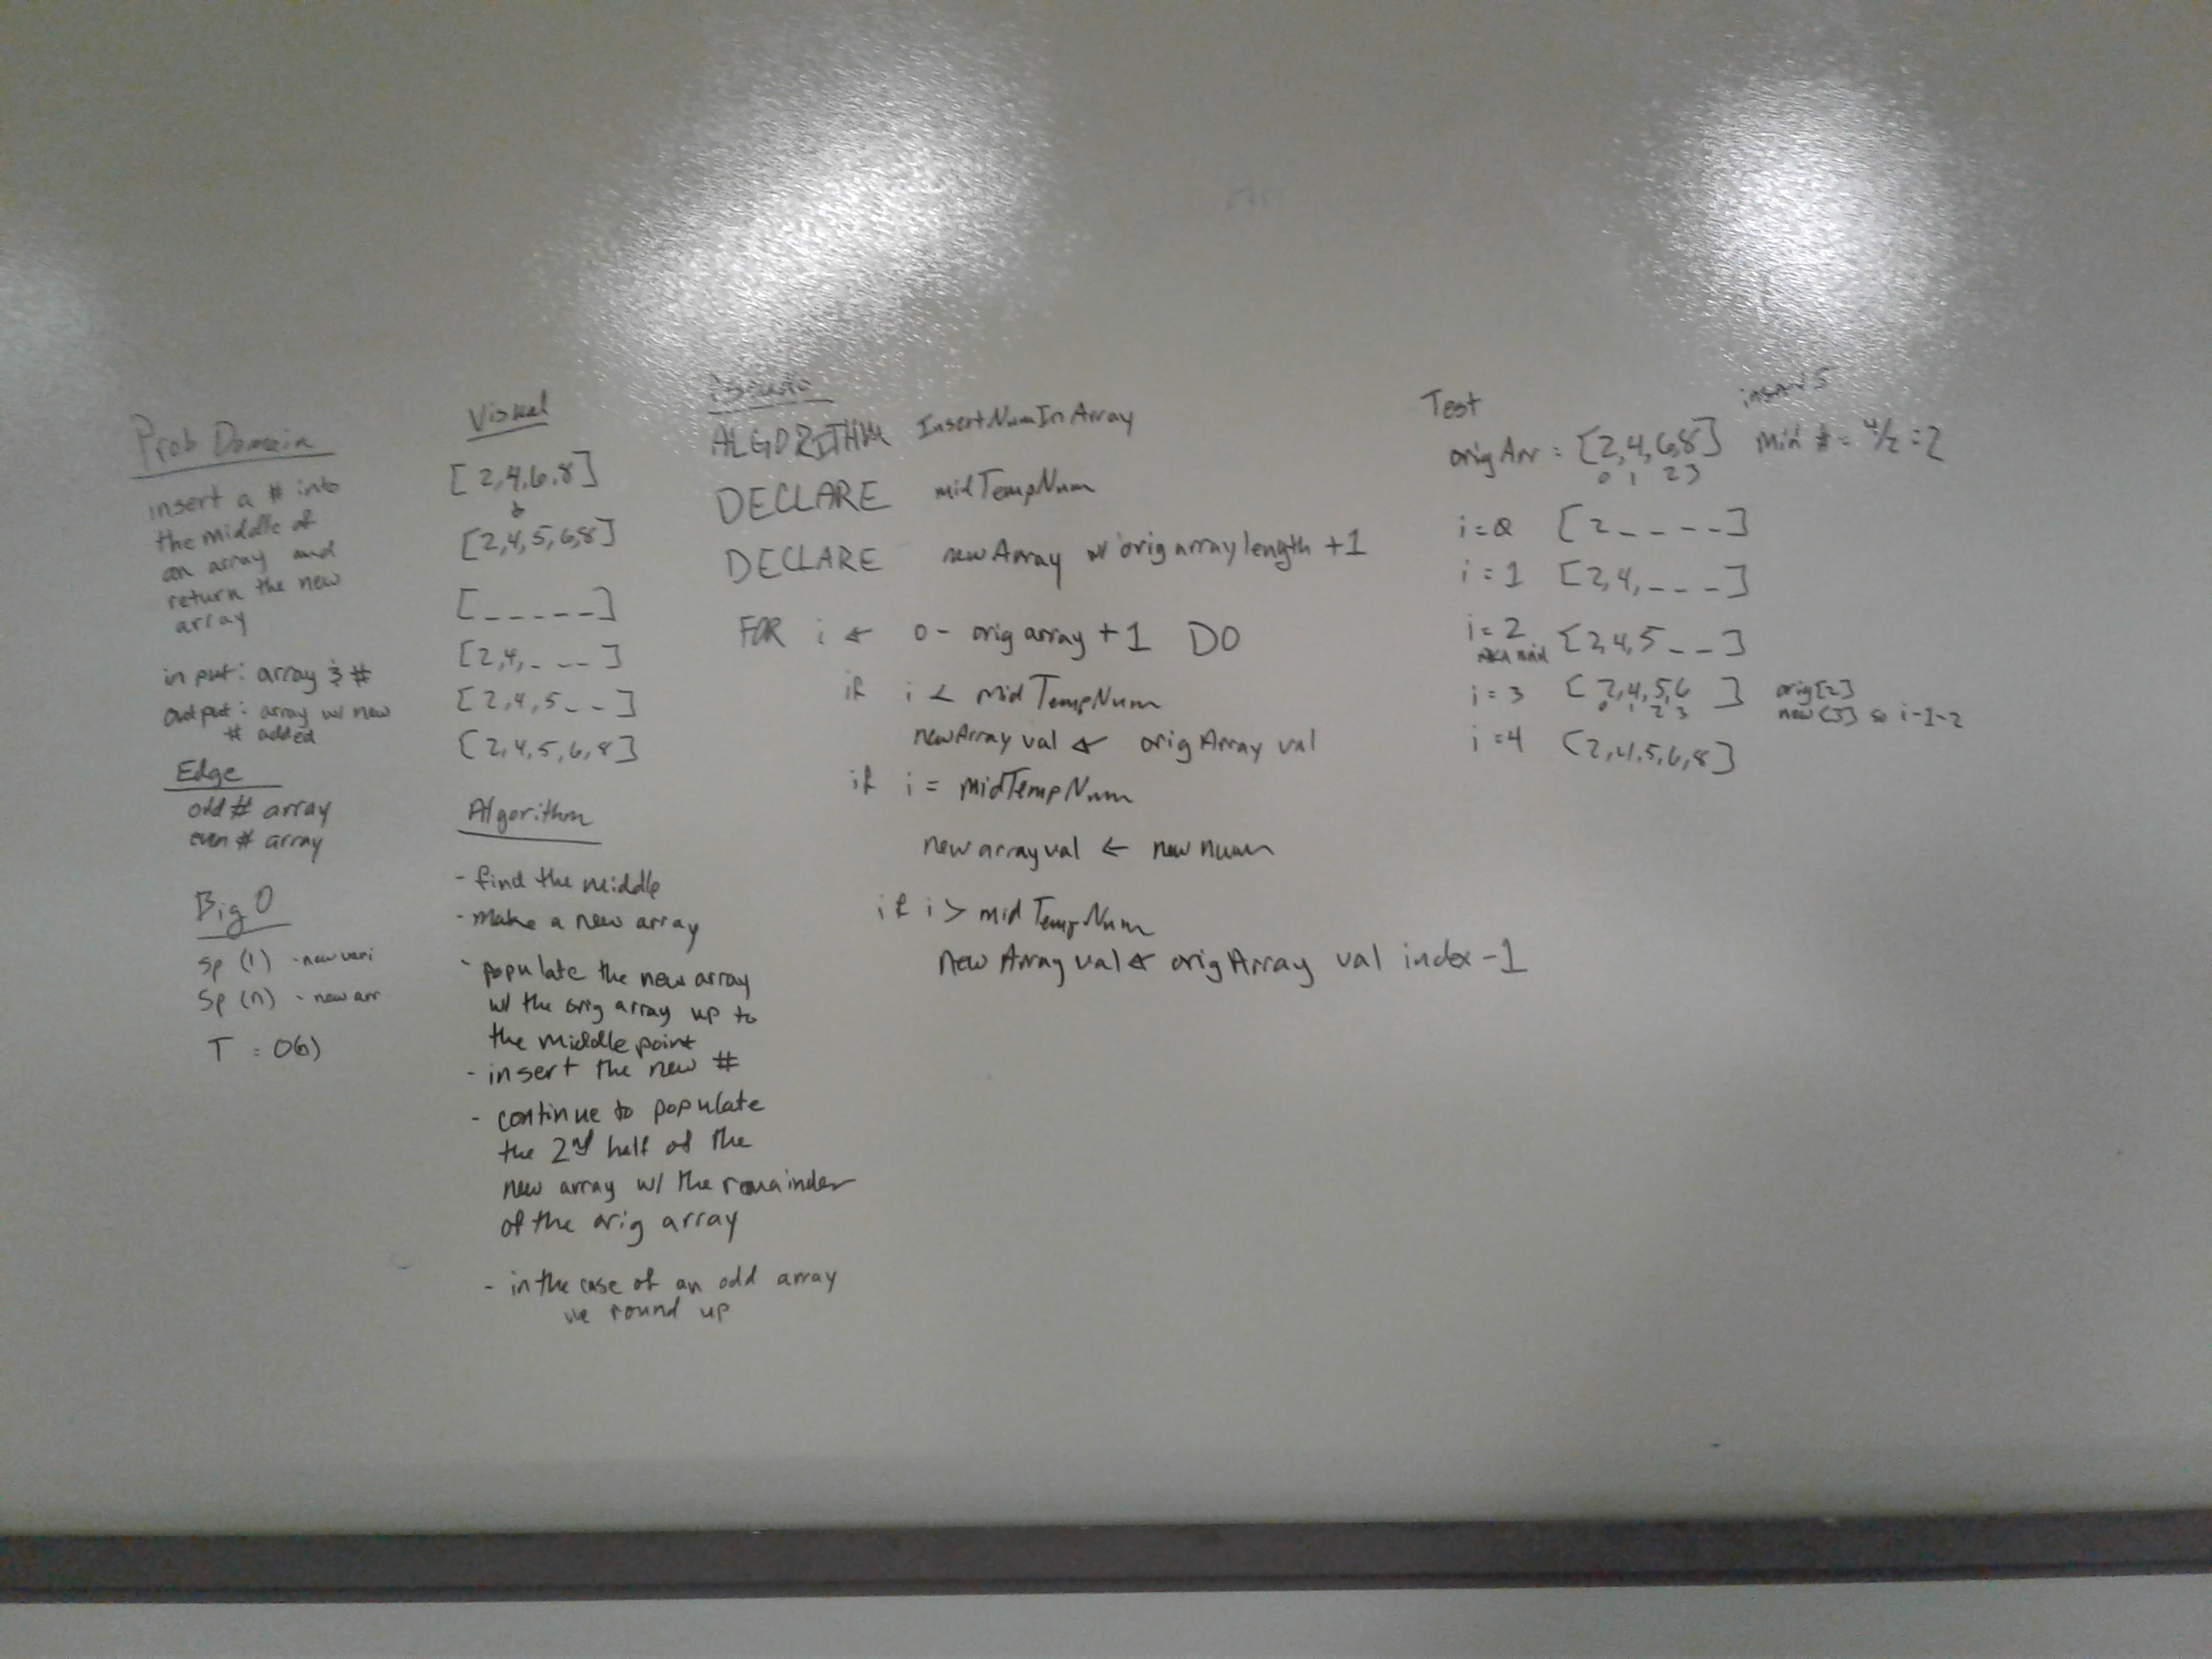 Prob Domain
insert a # into
the middle of
an array and
return the new
array
input: array & #
output: array w/ new
# added
Edge
odd # array
even # array
Big O
Sp (1) - new vari
Sp (n) - new arr
T = O(n)
Visual
[2,4,6,8]
[2,4,5,6,8]
[_ _ _ _ _]
[2,4,_ _ _]
[2,4,5_ _]
[2,4,5,6,8]
Algorithm
- find the middle
- make a new array
- populate the new array
w/ the orig array up to
the middle point
- insert the new #
- continue to populate
the 2nd half of the
new array w/ the remainder
of the orig array
- in the case of an odd array
we round up
Pseudo
ALGORITHM InsertNumInArray
DECLARE midTempNum
DECLARE newArray w/ orig array length +1
FOR i ← 0 - orig array + 1 DO
if i < midTempNum
newArray val ← origArray val
if i = midTempNum
new array val ← new num
if i > midTempNum
newArray val ← origArray val index -1
Test
insert 5
origArr = [2,4,6,8] mid # = 4/2 = 2
0 1 2 3
i=0 [2_ _ _ _]
i=1 [2,4,_ _ _]
i=2 [2,4,5 _ _]
AKA mid
i=3 [2,4,5,6 ] orig[2]
0 1 2 3 new[3] so i-1=2
i=4 [2,4,5,6,8]